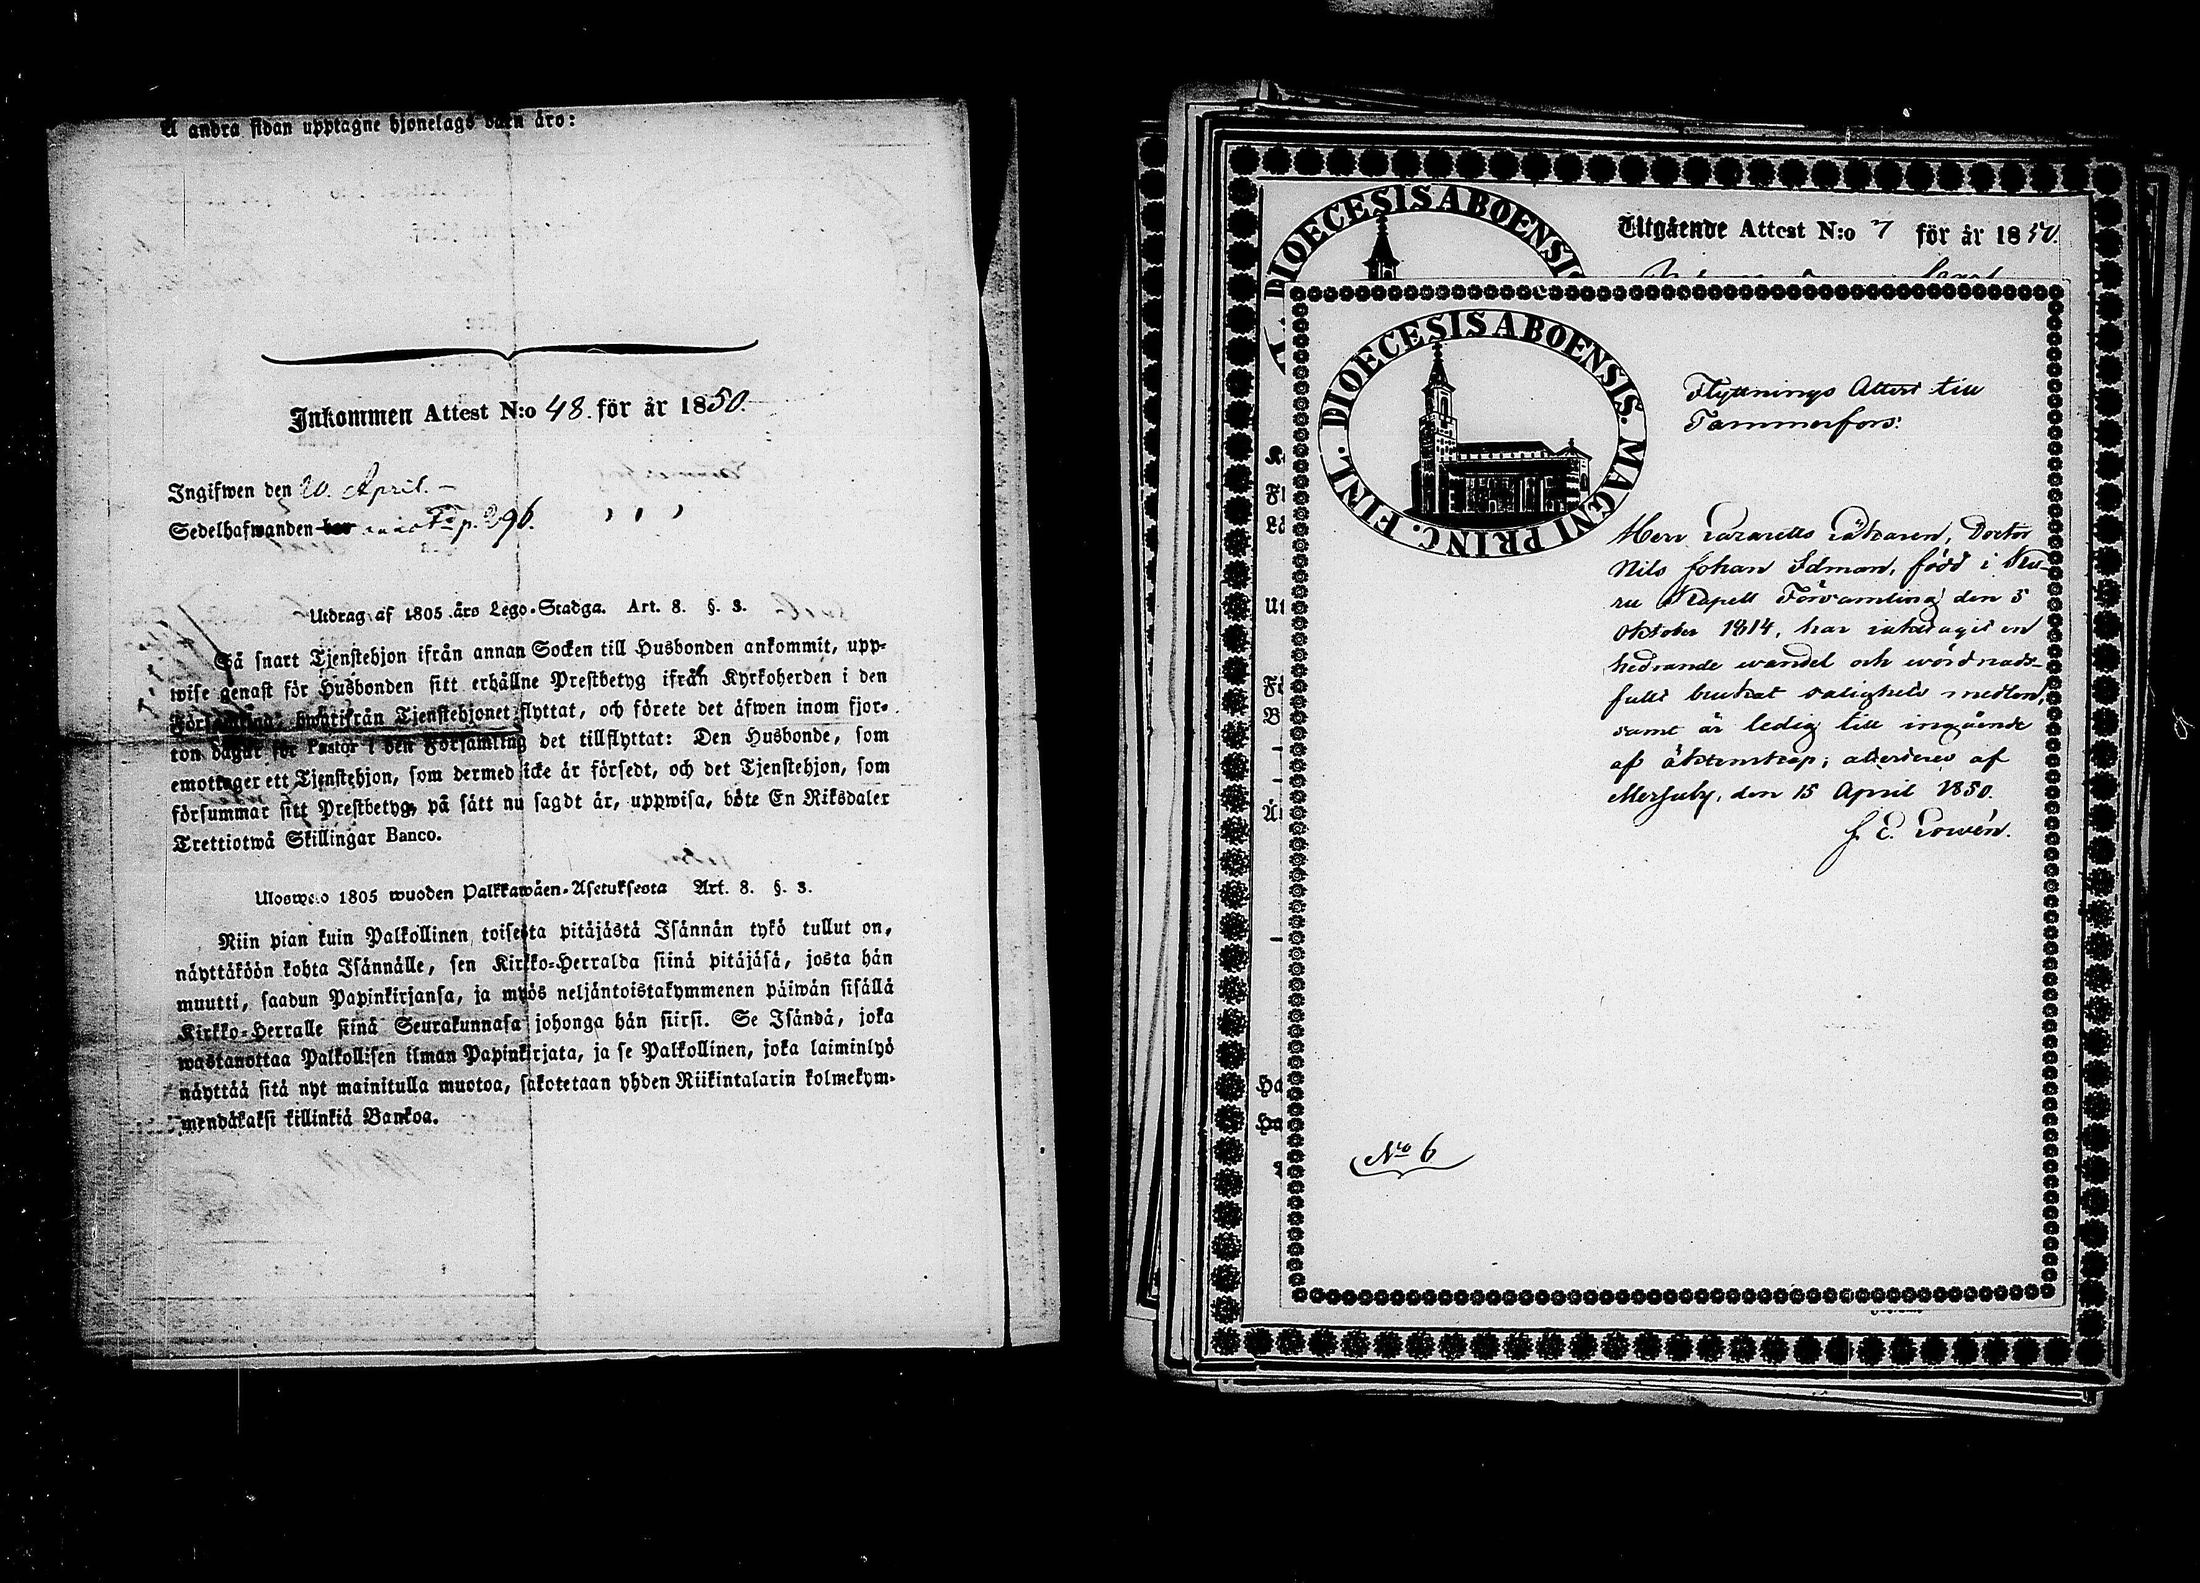 å andra sidan upptagne hjonelags barn äro:
Inkommen Attest N:o 48. för år 1850.
Ingifwen den 20. April. –
Sedelhafwanden p. 296.
Utdrag af 1805 års Lego-Stadga. Art. 8. §. 3.
Så snart Tjenstehjon ifrån annan Socken till Husbonden ankommit, upp-
wise genast för Husbonden sitt erhållne Prestbetyg ifrån Kyrkoherden i den
Församling, hwarifrån Tjenstehjonet flyttat, och förete det äfwen inom fjor-
ton dagar för Pastor i den Församling det tillflyttat: Den Husbonde, som
emottager ett Tjenstehjon, som dermed icke är försedt, och det Tjenstehjon, som
försummar sitt Prestbetyg, på sätt nu sagdt är, uppwisa, böte En Riksdaler
Trettiotwå Skillingar Banco.
Ulosweto 1805 wuoden Palkkawäen-Asetuksesta Art. 8. §. 3.
Niin pian kuin Palkollinen toisesta pitäjästä Isännän tykö tullut on,
näyttäköön kohta Isännälle, sen Kirkko-Herralda siinä pitäjäsä, josta hän
muutti, saadun Papinkirjansa, ja myös neljäntoistakymmenen päiwän sisällä
Kirkko-Herralle siinä Seurakunnasa johonga hän siirsi. Se Isändä, joka
wastanottaa Palkollisen ilman Papinkirjata, ja se Palkollinen, joka laiminlyö
näyttää sitä nyt mainitulla muotoa, sakotetaan yhden Riikintalarin kolmekym-
mendäkaksi killinkiä Bankoa.
DIOECESIS ABOENSIS
Utgående Attest N:o 7 för år 1850.
DIOECESIS ABOENSIS. MAGNI PRINC. FINL.
Flyttnings Attest till
Tammerfors:
Herr Lazaretts Läkaren, Doctor
Nils Johan Idman, född i
Kapell Församling den 5
Oktober 1814, har iakttagit en
hedrande wandel och wördnads-
fullt brukat salighets medlen,
samt är ledig till ingående
af äktenskap; attesteres af
Messuby, den 15 April 1850.
No 6